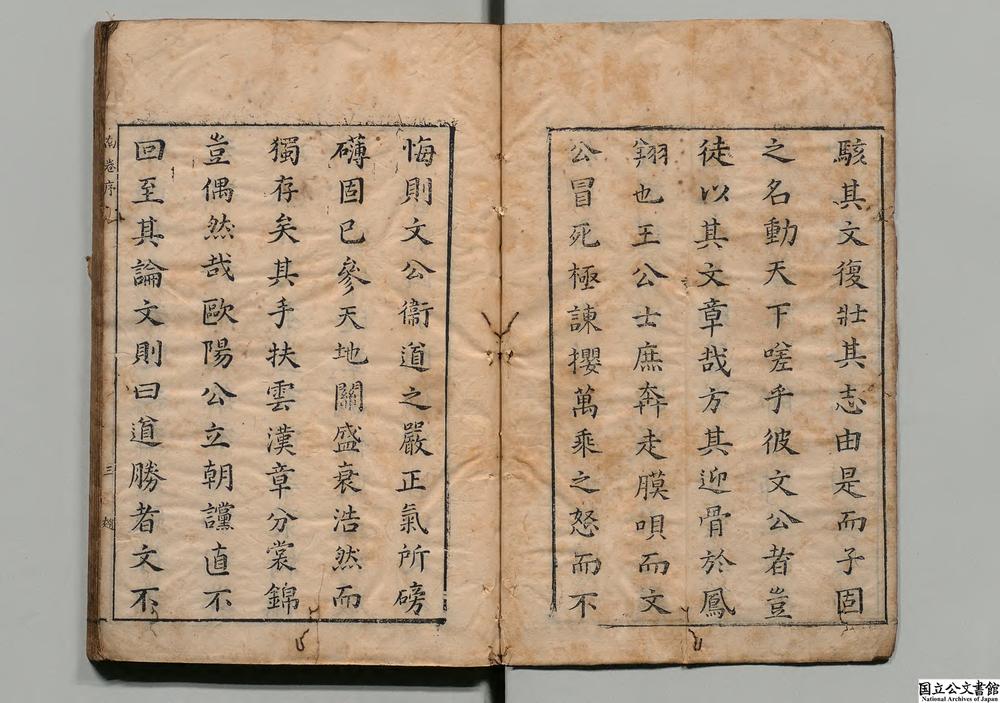 駭其文復壯其志由是而子固
之名動天下嗟乎彼文公者豈
徒以其文章哉方其迎骨於鳳
翔也王公士庶奔走膜唄而文
公冒死極諫攖萬乘之怒而不
悔則文公衞道之嚴正氣所磅
礴固已參天地關盛衰浩然而
獨存矣其手抉雲漢章分裳錦
豈偶然哉歐陽公立朝讜直不
回至其論文則曰道勝者文不
卷序
三
国立公文書館
National Archives of Japan